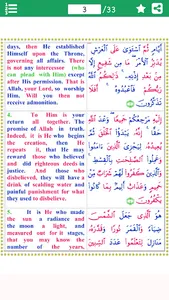 3 /33
days, then He established
Himself upon the Throne,
governing all affairs. There
is not any intercessor (who
can plead with Him) except
after His permission. That is
Allah, your Lord, so worship
Him, Will you then not
receive admonition.
أَيَّامٍ ثُمَّ ٱسْتَوَىٰ عَلَى ٱلْعَرْشِ
يُدَبِّرُ ٱلْأَمْرَ مَا مِن شَفِيعٍ إِلَّا
مِنۢ بَعْدِ إِذْنِهِۦ ذَٰلِكُمُ ٱللَّهُ
رَبُّكُمْ فَٱعْبُدُوهُ أَفَلَا
تَذَكَّرُونَ
4. To Him is your
return all together. The
promise of Allah in truth.
Indeed, it is He who begins
the creation, then He
repeats it, that He may
reward those who believed
and did righteous deeds in
justice. And those who
disbelieved, they will have a
drink of scalding water and
painful punishment for what
they used to disbelieve.
إِلَيْهِ مَرْجِعُكُمْ جَمِيعًا وَعْدَ
ٱللَّهِ حَقًّا إِنَّهُۥ يَبْدَؤُا۟ ٱلْخَلْقَ
ثُمَّ يُعِيدُهُۥ لِيَجْزِىَ ٱلَّذِينَ
ءَامَنُوا۟ وَعَمِلُوا۟ ٱلصَّٰلِحَٰتِ
بِٱلْقِسْطِ وَٱلَّذِينَ كَفَرُوا۟
لَهُمْ شَرَابٌ مِّنْ حَمِيمٍ
وَعَذَابٌ أَلِيمٌۢ بِمَا كَانُوا۟
يَكْفُرُونَ
5. It is He who made
the sun a radiance and
the moon a light, and
measured out for it stages,
that you may know the
number of the years,
هُوَ ٱلَّذِى جَعَلَ
ٱلشَّمْسَ ضِيَآءً وَٱلْقَمَرَ
نُورًا وَقَدَّرَهُۥ مَنَازِلَ
لِتَعْلَمُوا۟ عَدَدَ ٱلسِّنِينَ